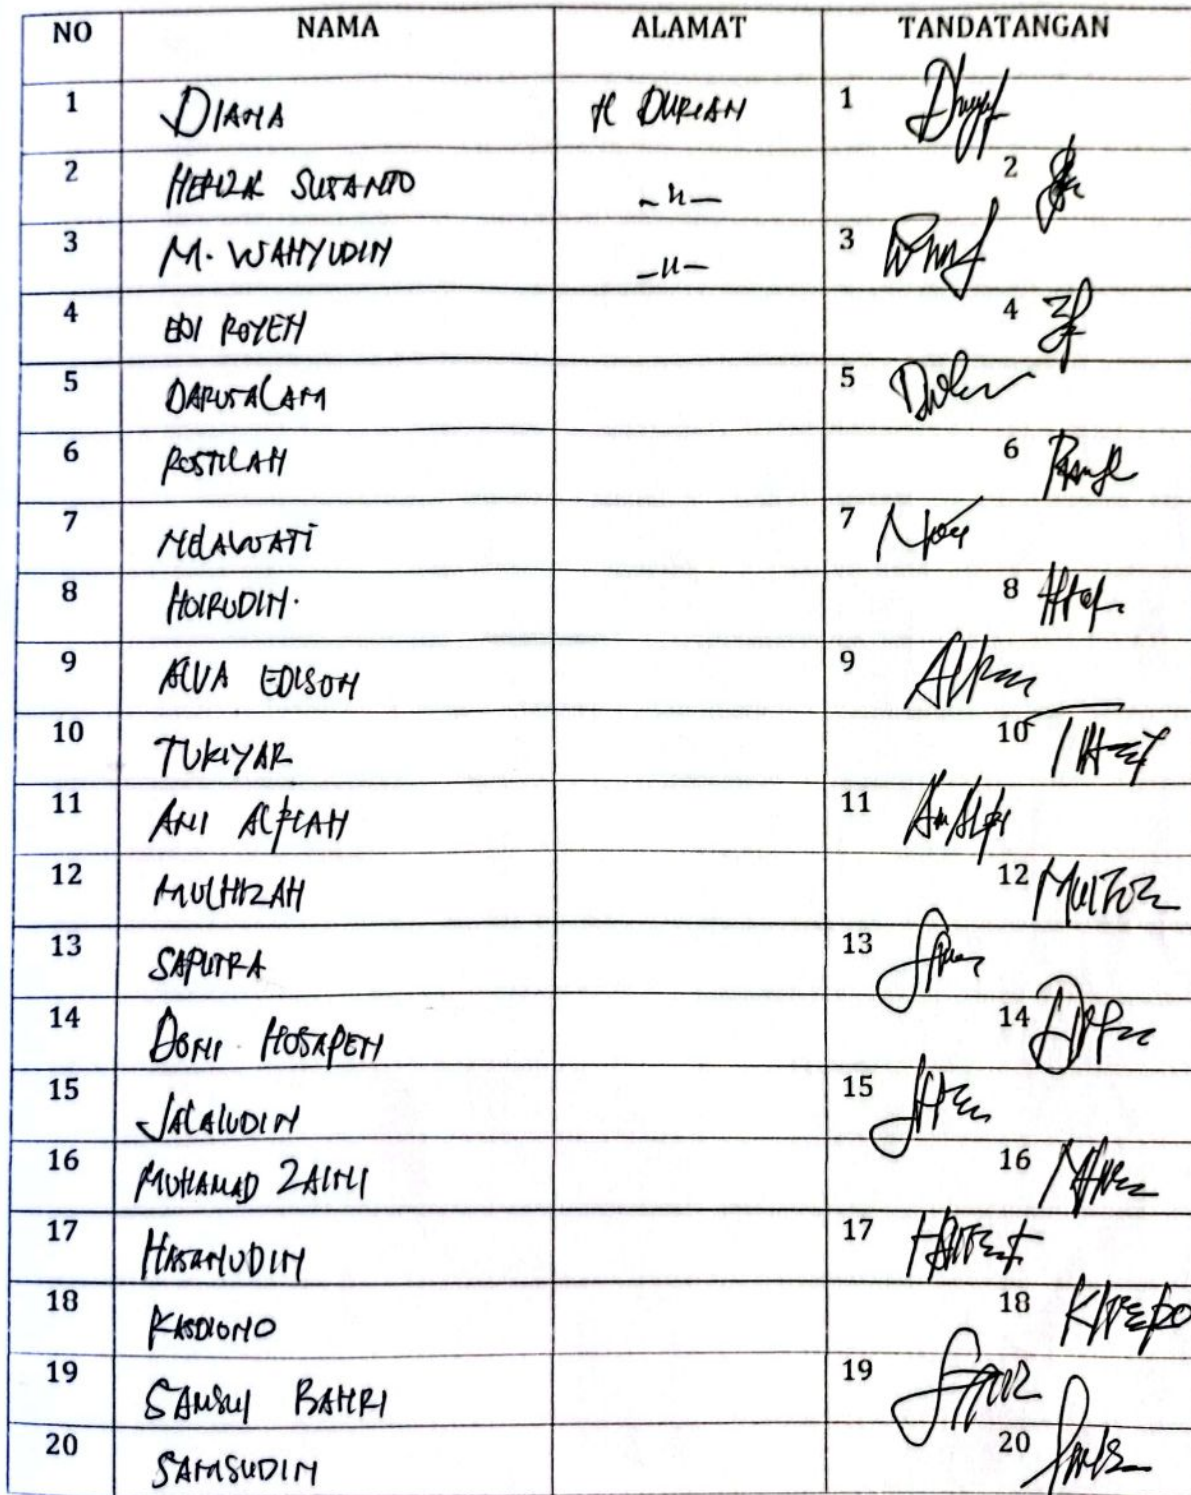 NO NAMA ALAMAT TANDATANGAN
1 DIANA H DURIAN 1
2 SUSANTO -"- 2
3 M. WAHYUDIN -"- 3
4 EDI ROYEN 4
5 DARUSALAM 5
6 ROSTILAH 6
7 NELAWATI 7
8 HOIRUDIN. 8
9 ALVA EDISON 9
10 TUKIYAR 10
11 ANI ALFIAH 11
12 MULHIZAH 12
13 SAPUTRA 13
14 DONI HOSAPEN 14
15 JALALUDIN 15
16 MUHAMAD ZAINI 16
17 HASANUDIN 17
18 KASDIONO 18
19 SAMSUL BAHRI 19
20 SAMSUDIN 20